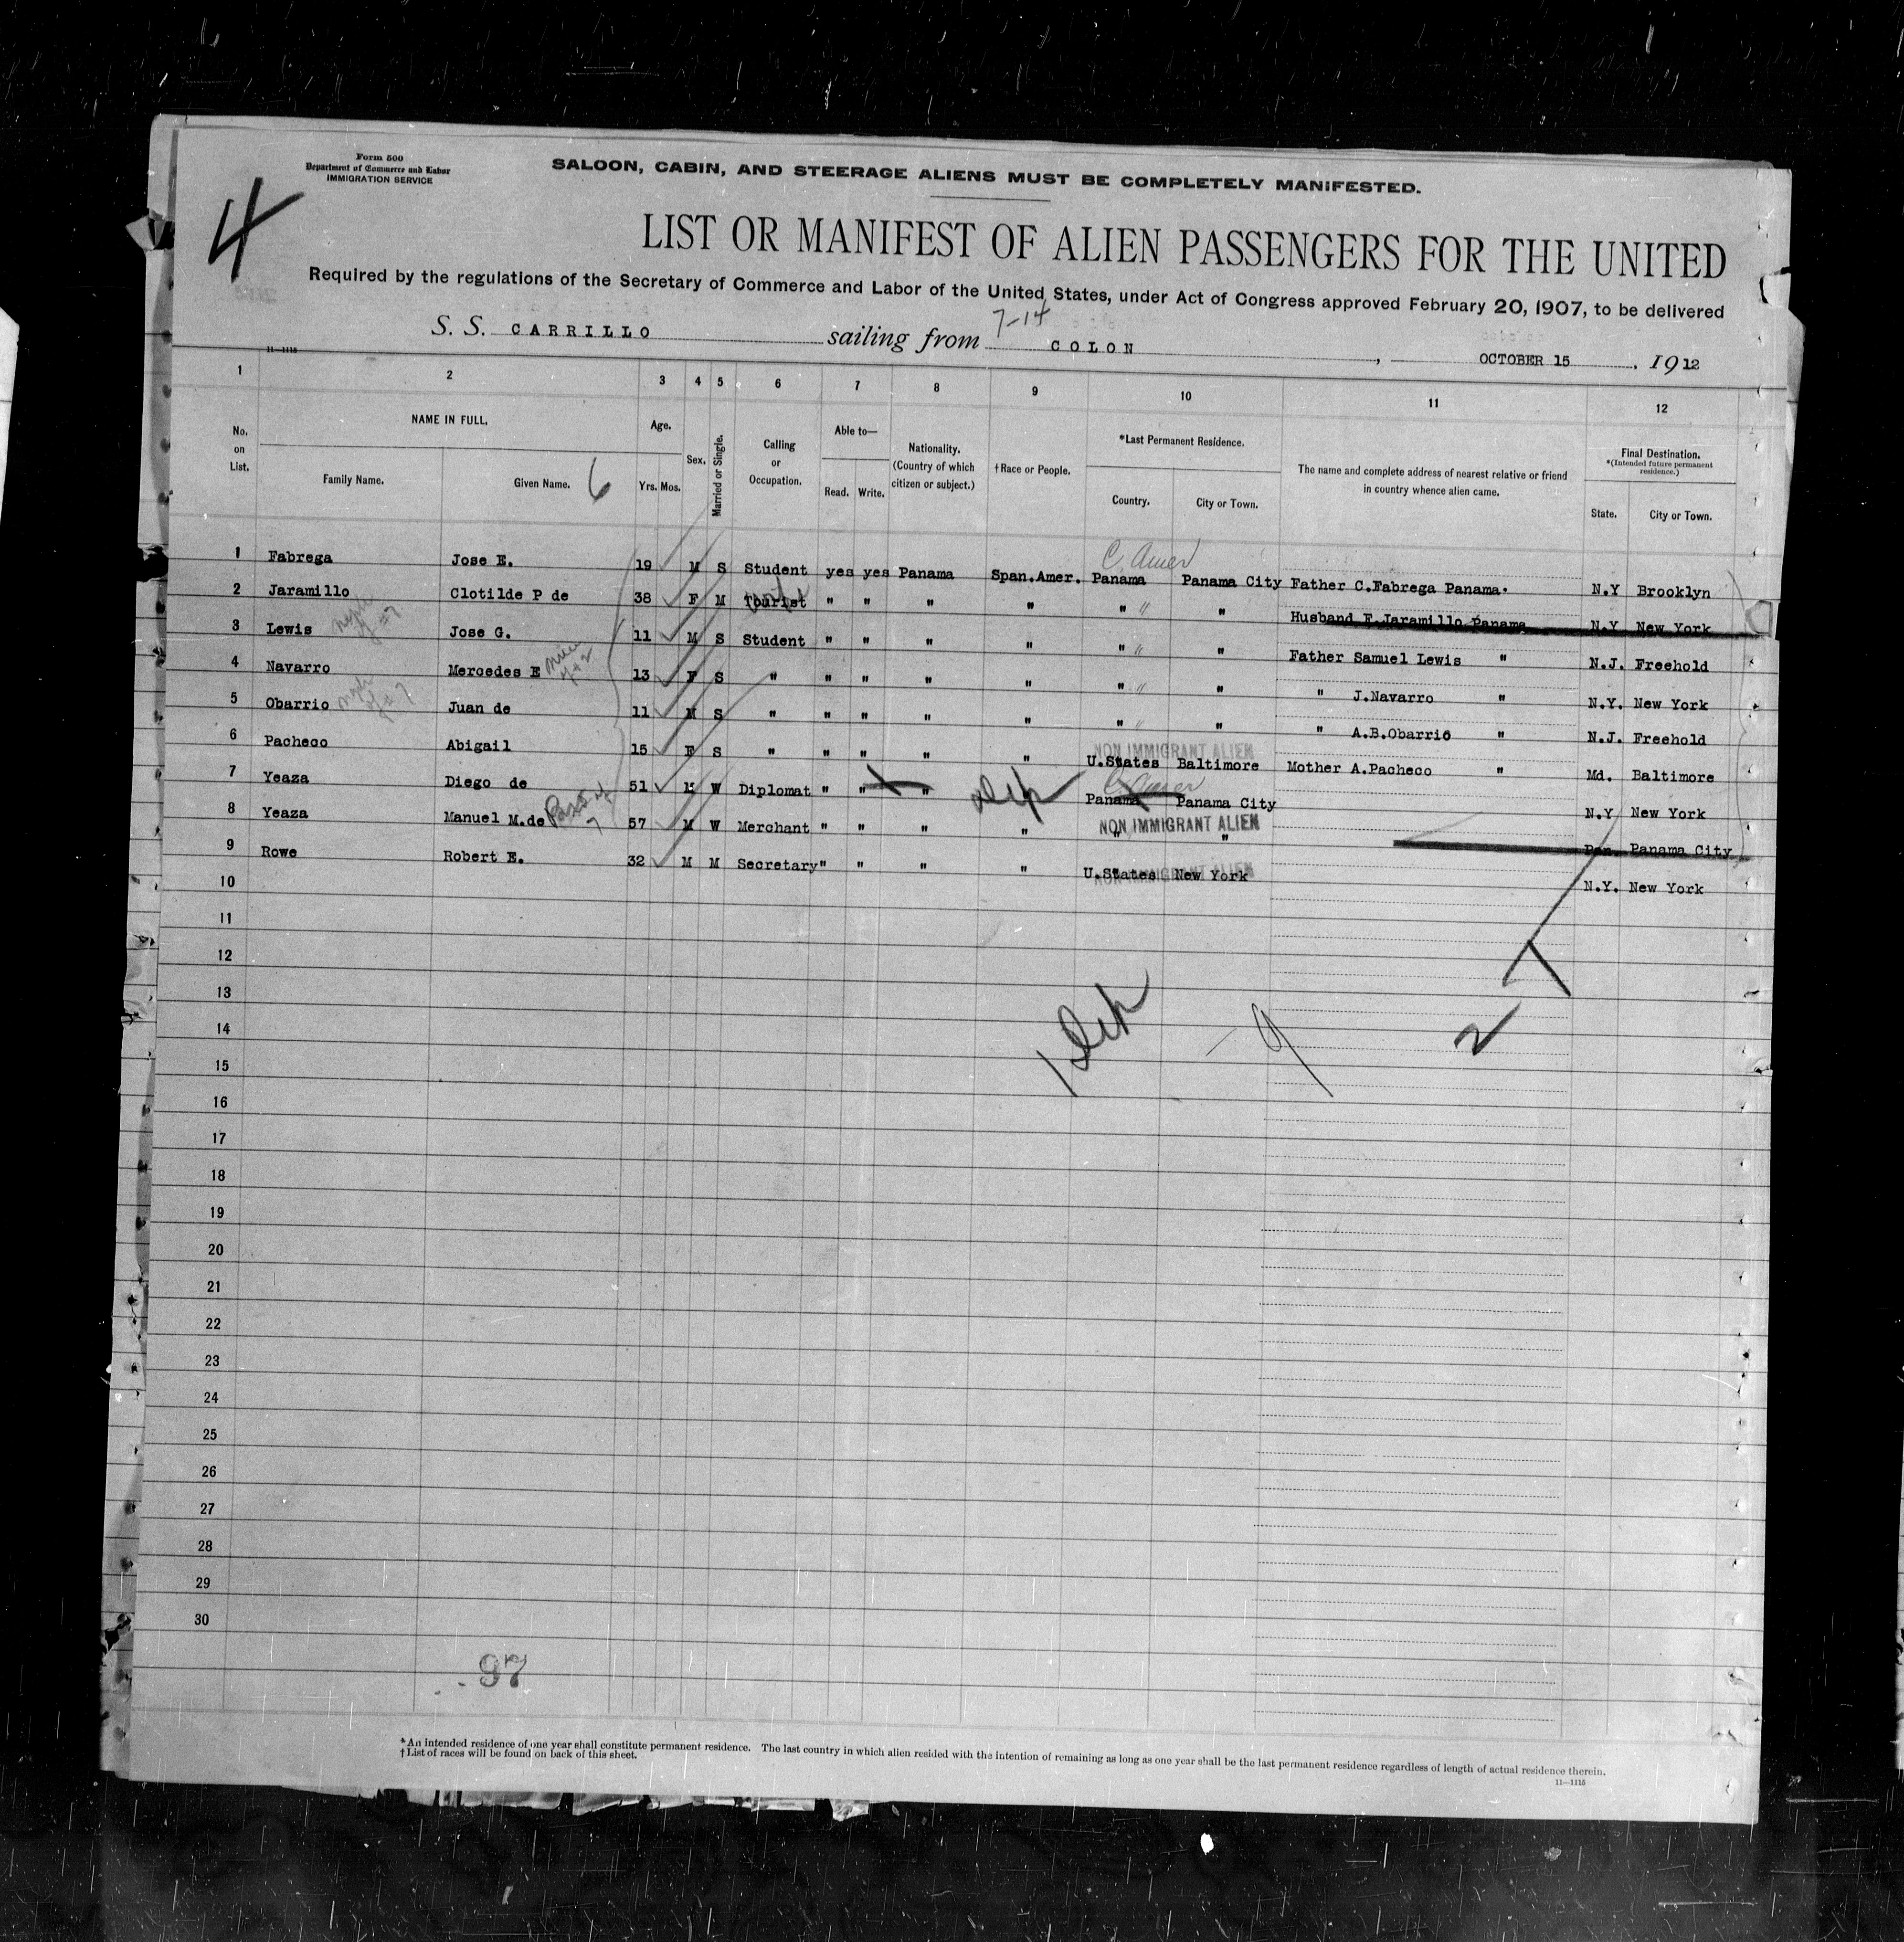 Form 500
Department of Commerce and Labor
IMMIGRATION SERVICE
4
SALOON, CABIN, AND STEERAGE ALIENS MUST BE COMPLETELY MANIFESTED.
LIST OR MANIFEST OF ALIEN PASSENGERS FOR THE UNITED
Required by the regulations of the Secretary of Commerce and Labor of the United States, under Act of Congress approved February 20, 1907, to be delivered
7-14
S. S. CARRILLO sailing from COLON, OCTOBER 15, 1912
11—1115
1 2 3 4 5 6 7 8 9 10 11 12
No. on List. NAME IN FULL. Age. Sex. Married or Single. Calling or Occupation. Able to— Nationality. (Country of which citizen or subject.) †Race or People. *Last Permanent Residence. The name and complete address of nearest relative or friend in country whence alien came. Final Destination. *(Intended future permanent residence.)
Family Name. Given Name. 6 Yrs. Mos. Read. Write. Country. City or Town. State. City or Town.
C. Amer
1 Fabrega Jose E. 19 M S Student yes yes Panama Span.Amer. Panama Panama City Father C.Fabrega Panama. N.Y Brooklyn
2 Jaramillo Clotilde P de 38 F M Tourist " " " " " " Husband F.Jaramillo Panama N.Y. New York
3 Lewis Jose G. 11 M S Student " " " " " " Father Samuel Lewis " N.J. Freehold
4 Navarro Mercedes E 13 F S " " " " " " " " J.Navarro " N.Y. New York
5 Obarrio Juan de 11 M S " " " " " " " " A.B.Obarrio " N.J. Freehold
NON IMMIGRANT ALIEN
6 Pacheco Abigail 15 F S " " " " " U.States Baltimore Mother A.Pacheco " Md. Baltimore
C. Amer
7 Yeaza Diego de 51 M W Diplomat " " " Dip Panama Panama City N.Y New York
8 Yeaza Manuel M.de 57 M W Merchant " " " " " " Pan. Panama City
NON IMMIGRANT ALIEN
9 Rowe Robert E. 32 M M Secretary " " " " U.States New York N.Y. New York
NON IMMIGRANT ALIEN
10
11
12
13
14
1 Dip - 9 2
15
16
17
18
19
20
21
22
23
24
25
26
27
28
29
30
97
*An intended residence of one year shall constitute permanent residence. The last country in which alien resided with the intention of remaining as long as one year shall be the last permanent residence regardless of length of actual residence therein.
†List of races will be found on back of this sheet.
11—1115